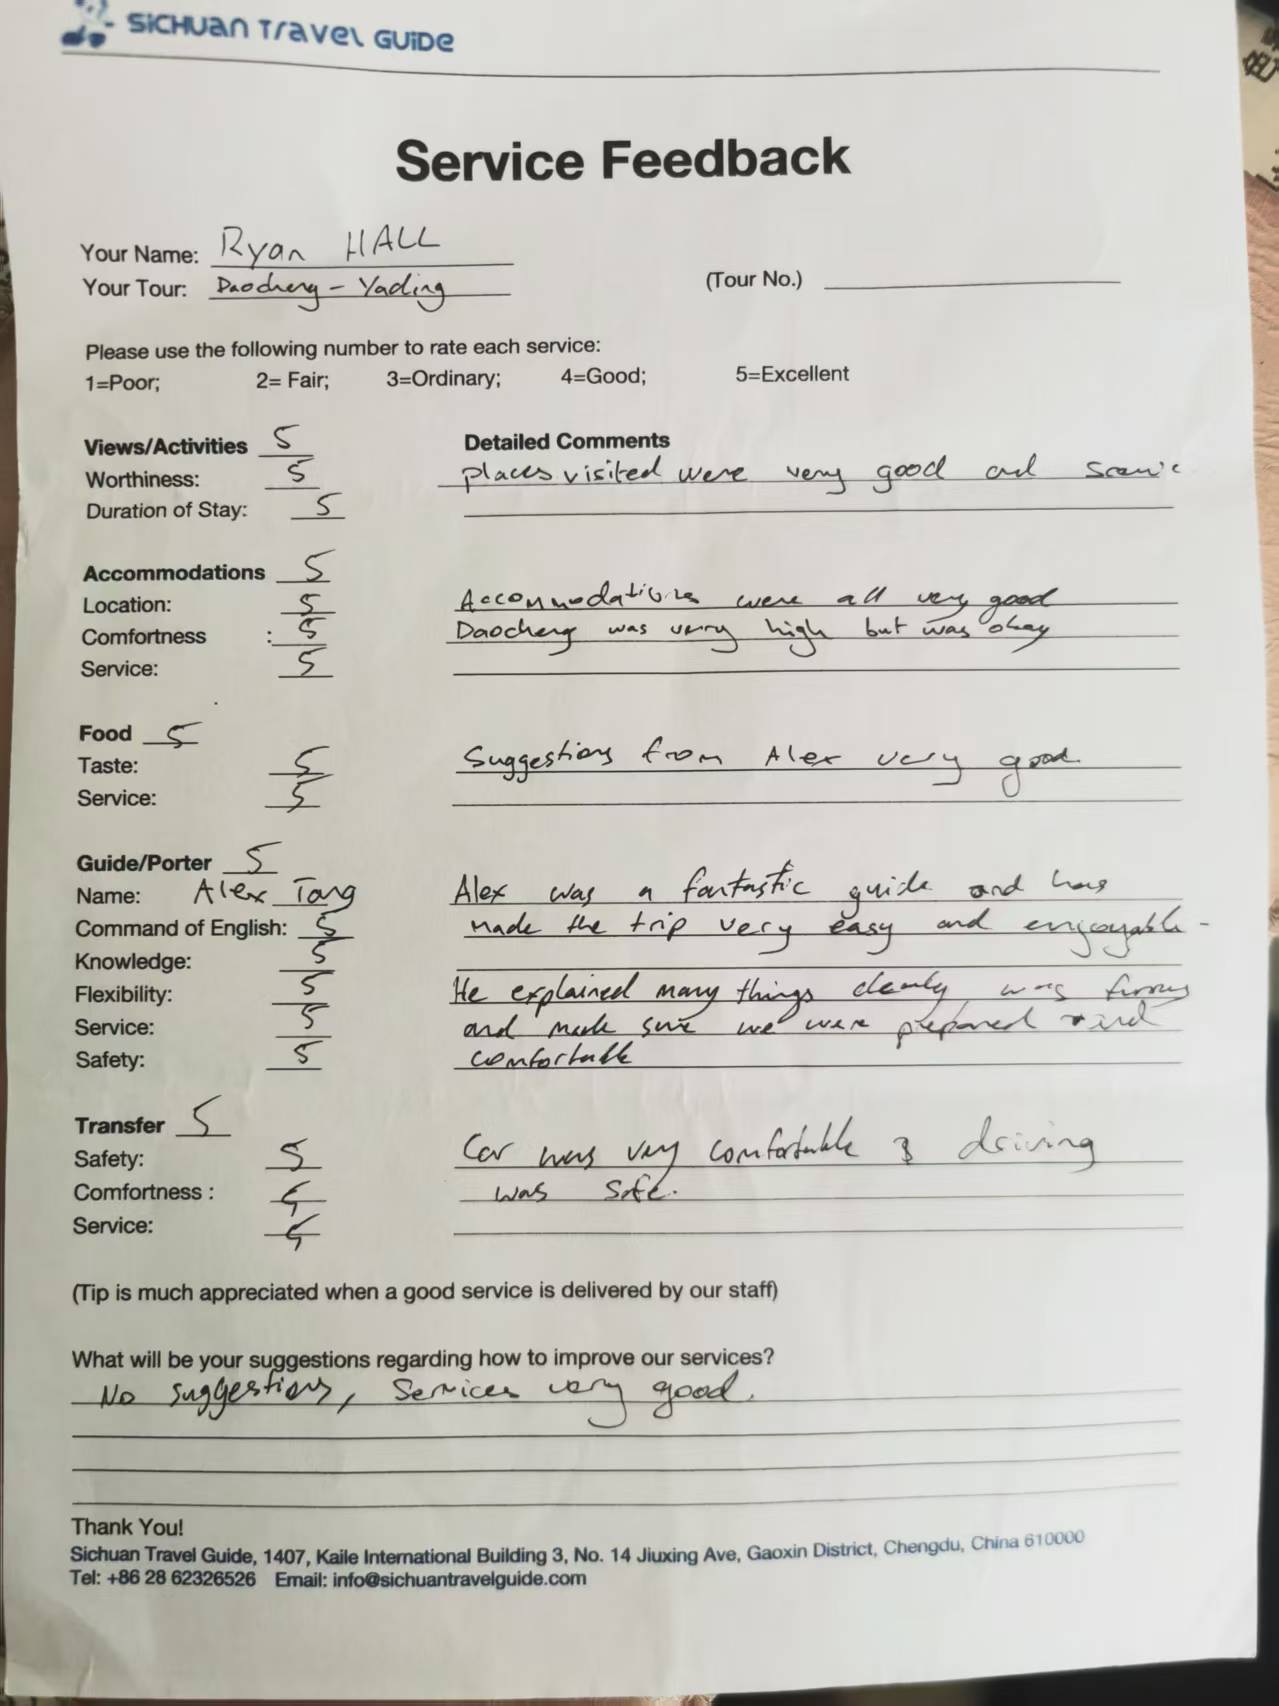 SiCHUan TraveL GUiDe
Service Feedback
Your Name: Ryan HALL
Your Tour: Daocheng - Yading (Tour No.)
Please use the following number to rate each service:
1=Poor; 2= Fair; 3=Ordinary; 4=Good; 5=Excellent
Views/Activities 5 Detailed Comments
Worthiness: 5 places visited were very good and scenic
Duration of Stay: 5
Accommodations 5
Location: 5 Accommodations were all very good
Comfortness : 5 Daocheng was very high but was okay
Service: 5
Food 5
Taste: 5 Suggestions from Alex very good.
Service: 5
Guide/Porter 5
Name: Alex Tang Alex was a fantastic guide and has
Command of English: 5 made the trip very easy and enjoyable -
Knowledge: 5
Flexibility: 5 He explained many things clearly, was funny
Service: 5 and made sure we were prepared and
Safety: 5 comfortable
Transfer 5
Safety: 5 Car was very comfortable & driving
Comfortness : 5 was safe.
Service: 5
(Tip is much appreciated when a good service is delivered by our staff)
What will be your suggestions regarding how to improve our services?
No suggestions, services very good.
Thank You!
Sichuan Travel Guide, 1407, Kaile International Building 3, No. 14 Jiuxing Ave, Gaoxin District, Chengdu, China 610000
Tel: +86 28 62326526 Email: info@sichuantravelguide.com